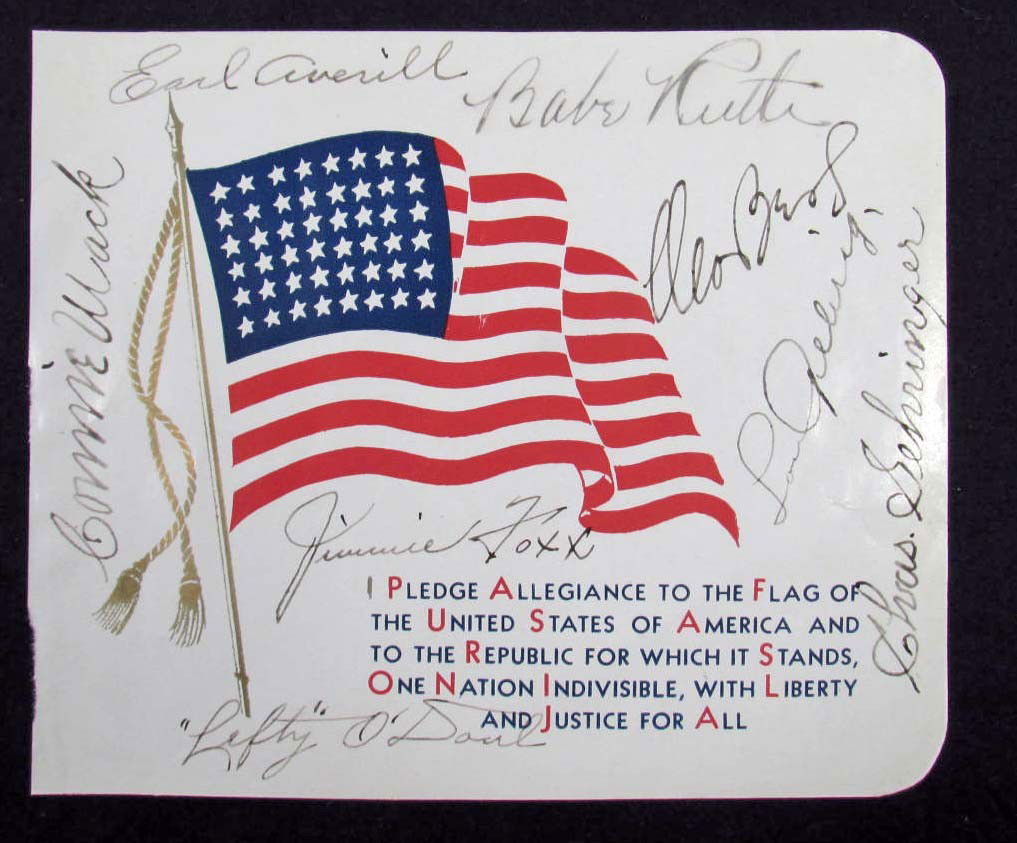 Earl Averill
Babe Ruth
Connie Mack
Lou Gehrig
Chas. Gehringer
Jimmie Foxx
I PLEDGE ALLEGIANCE TO THE FLAG OF
THE UNITED STATES OF AMERICA AND
TO THE REPUBLIC FOR WHICH IT STANDS,
ONE NATION INDIVISIBLE, WITH LIBERTY
AND JUSTICE FOR ALL
"Lefty" O'Doul